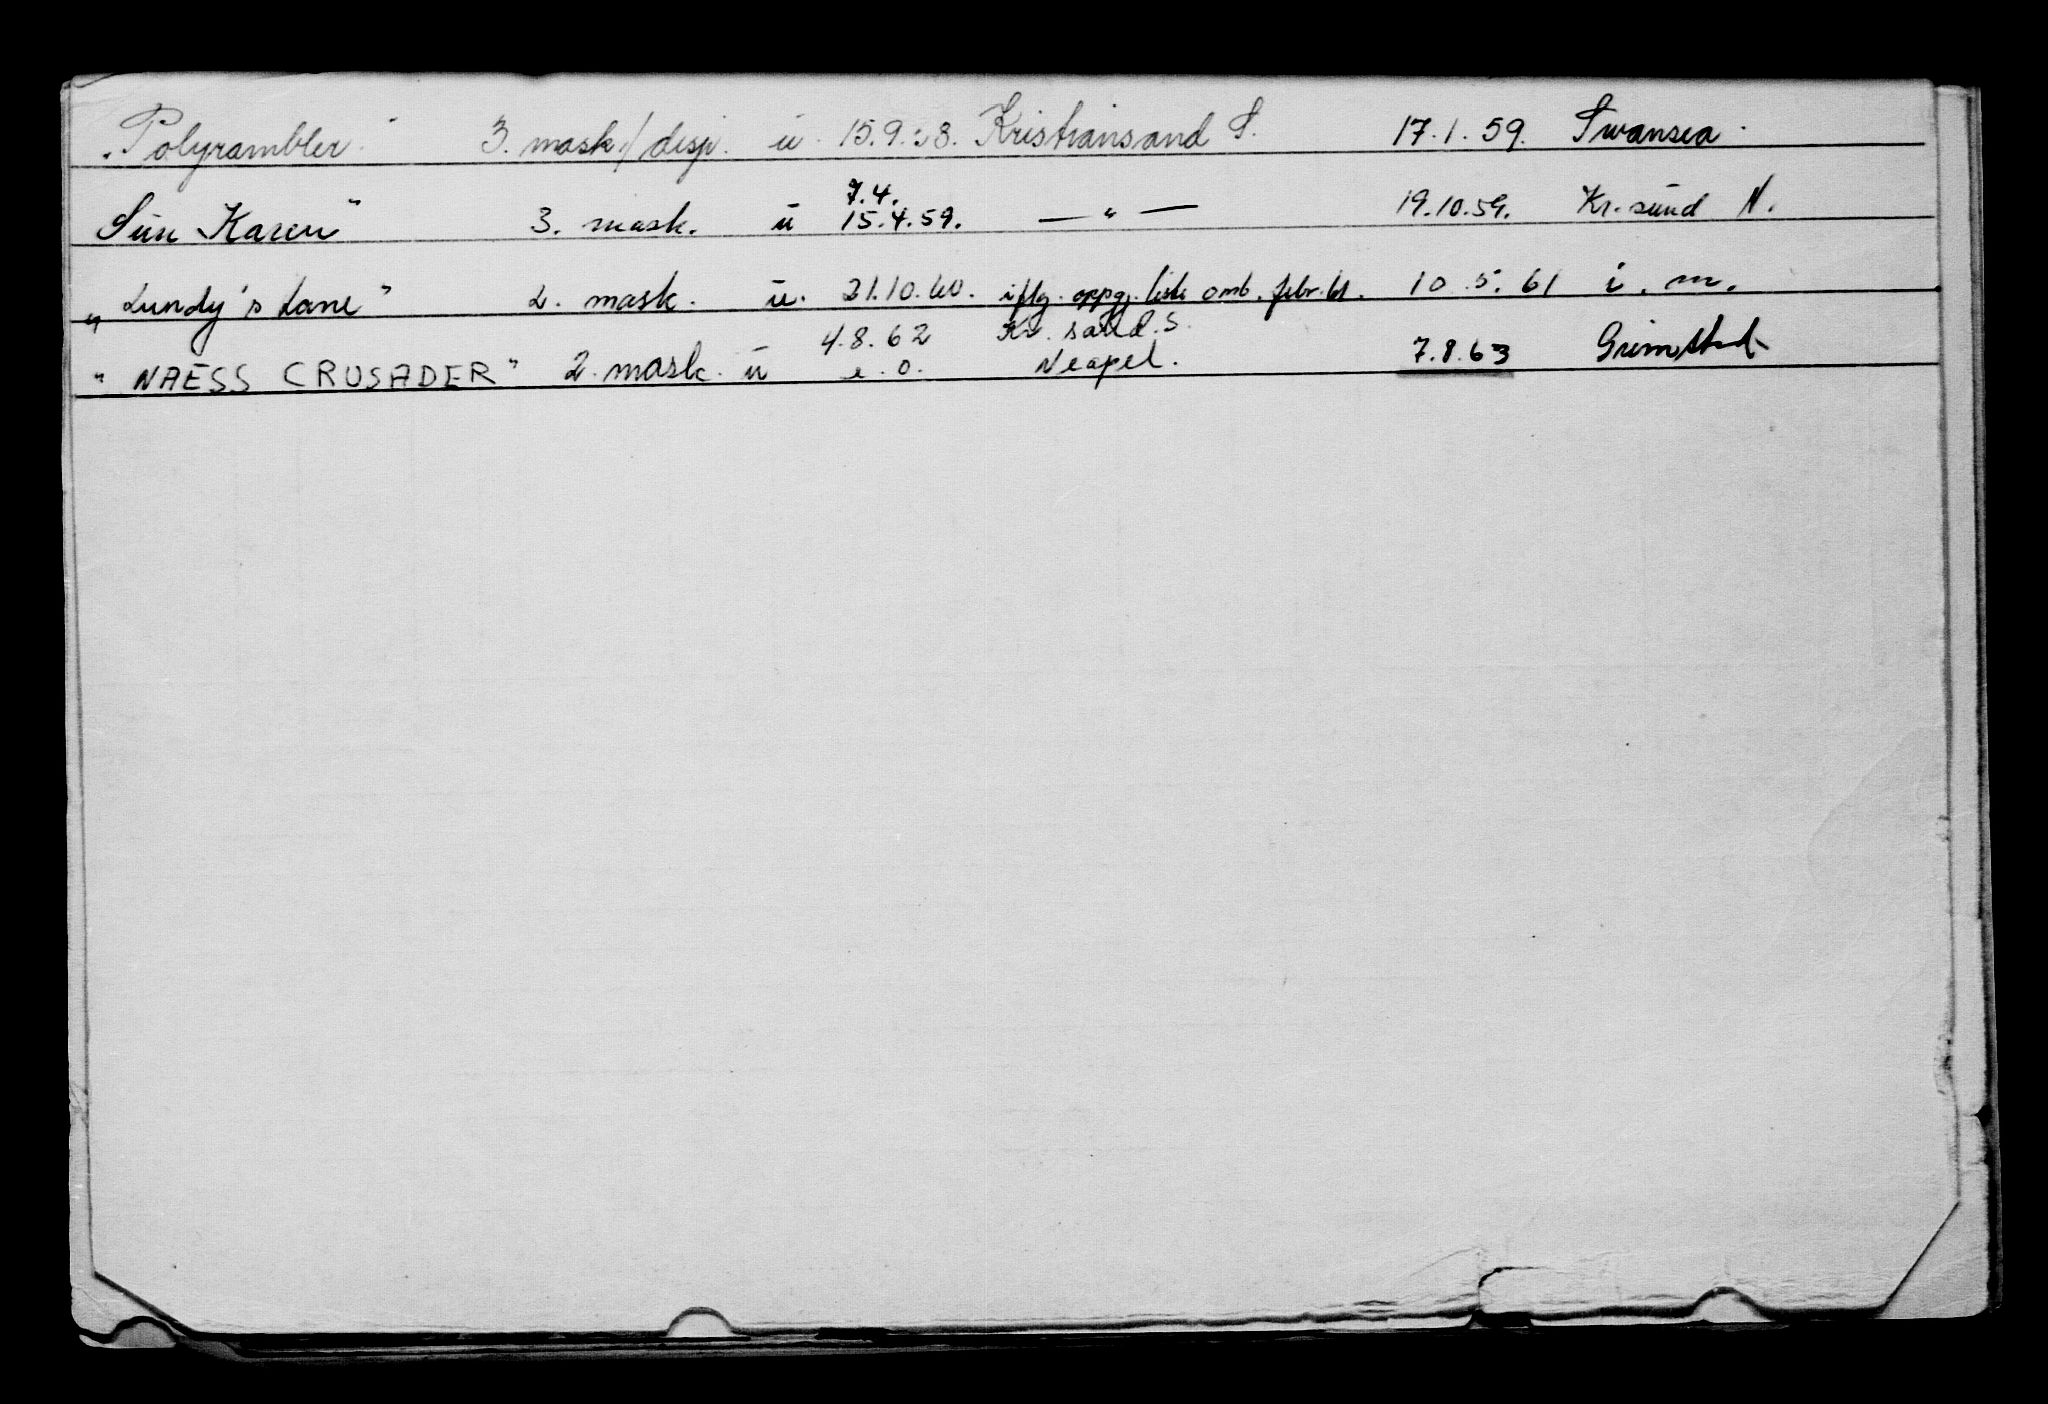 "Polyrambler" 3. mask./disp. u. 15.9.58. Kristiansand S. 17.1.59. Swansea.
7.4.
Sun Karen" 3. mask. u 15.4.59. — " — 19.10.59. Kr.sund N.
"Lundy's Lane" 2. mask. u. 31.10.60. iflg. oppgj. liste omb. febr. 61. 10.5.61 i.m.
4.8.62 Kr.sand.S.
"NAESS CRUSADER" 2. mask. u e.o. Neapel. 7.8.63 Grimstad